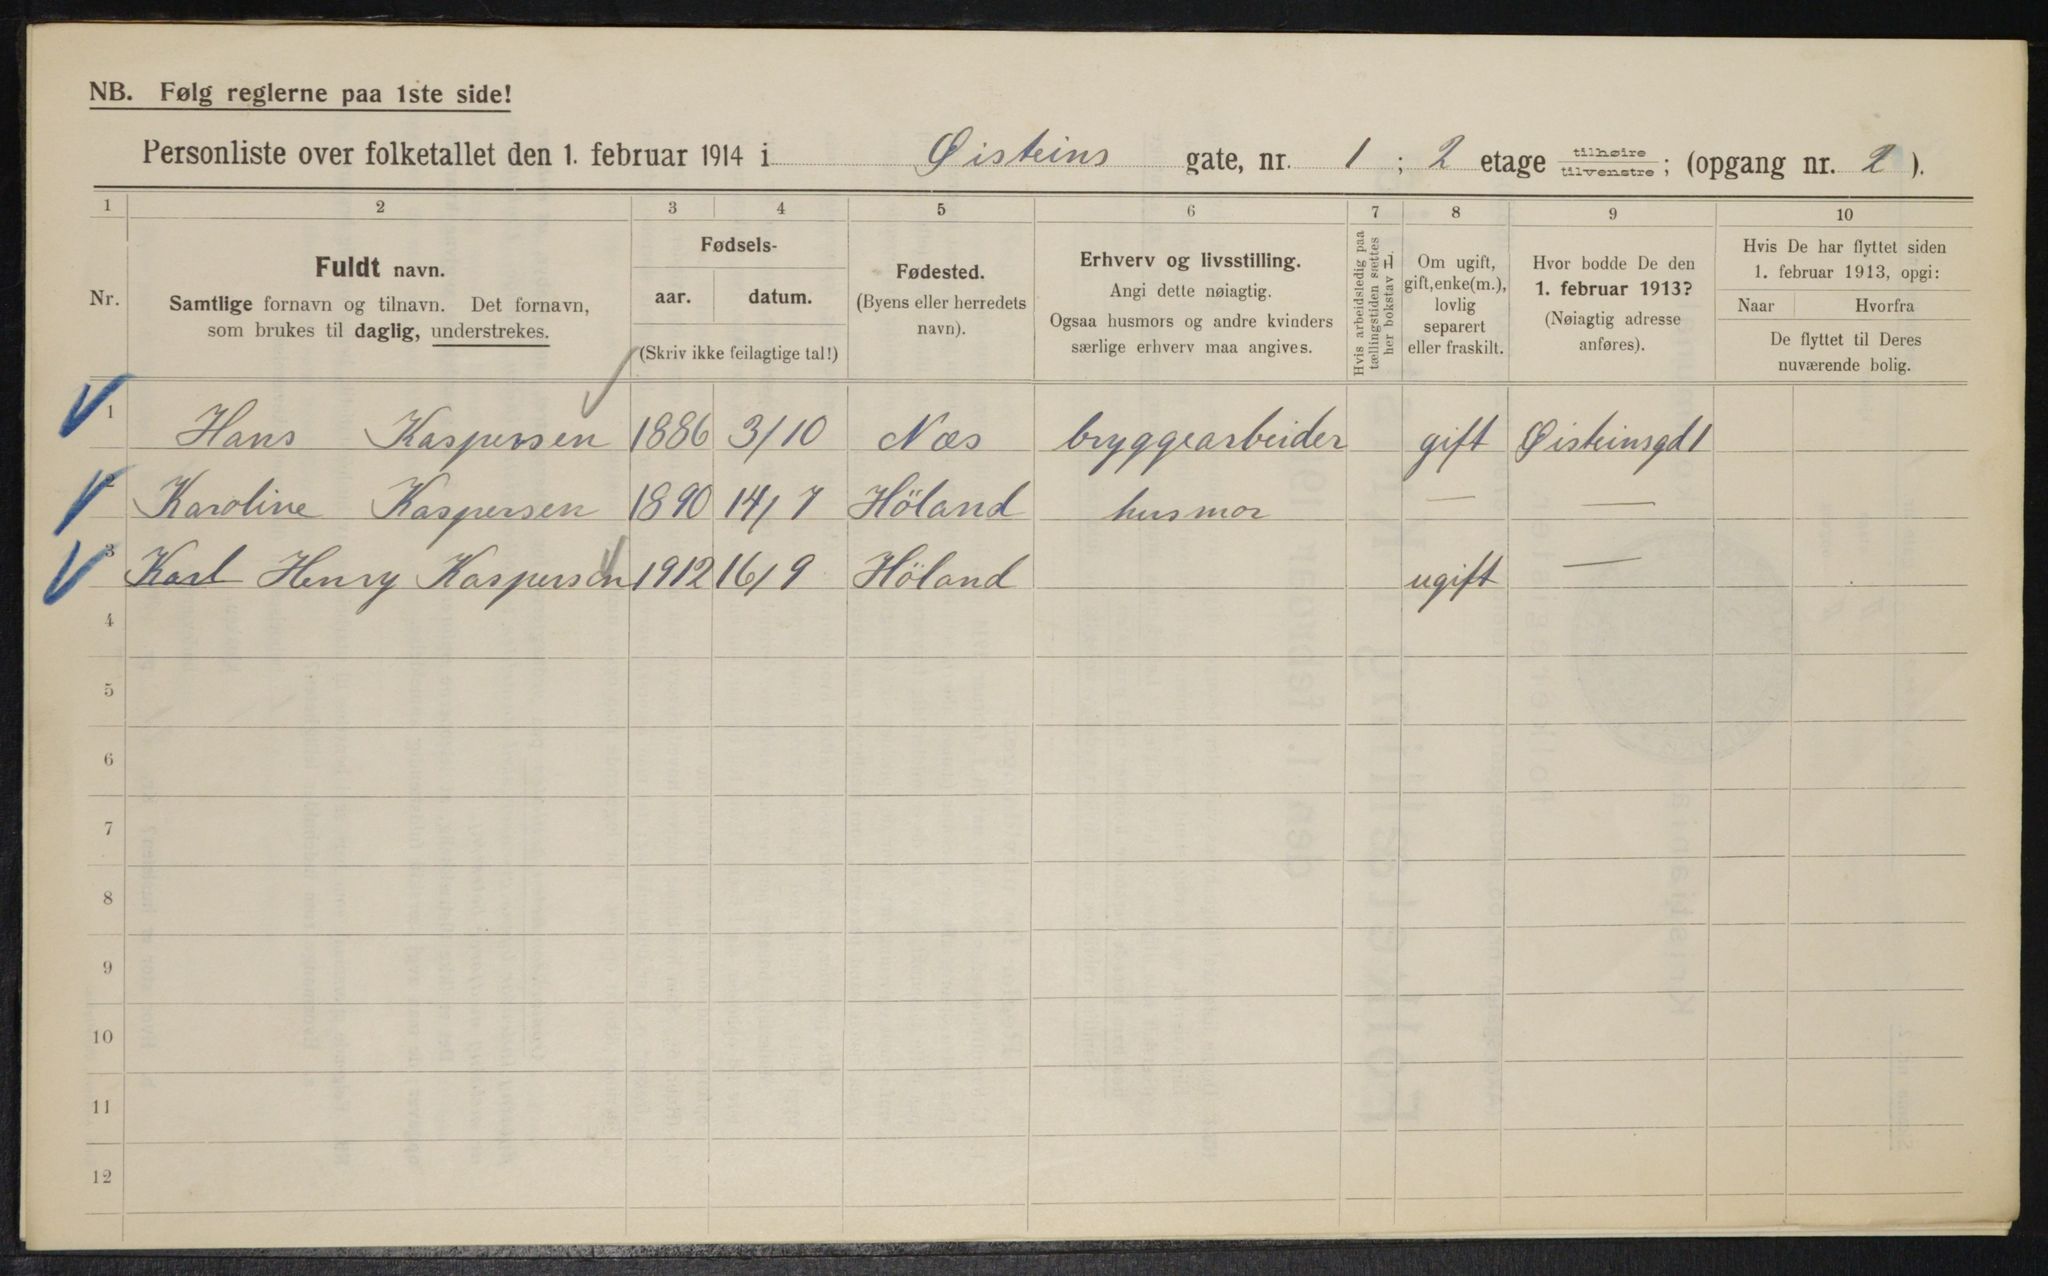 NB. Følg reglerne paa 1ste side!
Personliste over folketallet den 1. februar 1914 i Øisteins gate, nr. 1 ; 2 etage tilhøire/tilvenstre ; (opgang nr. 2 ).
1 2 3 4 5 6 7 8 9 10
Nr.
Fuldt navn.
Samtlige fornavn og tilnavn. Det fornavn,
som brukes til daglig, understrekes.
Fødsels-
aar. datum.
(Skriv ikke feilagtige tal!)
Fødested.
(Byens eller herredets
navn).
Erhverv og livsstilling.
Angi dette nøiagtig.
Ogsaa husmors og andre kvinders
særlige erhverv maa angives.
Hvis arbeidsledig paa
tællingstiden sættes
her bokstav L.
Om ugift,
gift, enke(m.),
lovlig
separert
eller fraskilt.
Hvor bodde De den
1. februar 1913?
(Nøiagtig adresse
anføres).
Hvis De har flyttet siden
1. februar 1913, opgi:
Naar Hvorfra
De flyttet til Deres
nuværende bolig.
1 Hans Kaspersen 1886 3/10 Næs bryggearbeider gift Øisteinsgd 1
2 Karoline Kaspersen 1890 14/7 Höland husmor — —
3 Karl Henry Kaspersen 1912 16/9 Höland ugift —
4
5
6
7
8
9
10
11
12